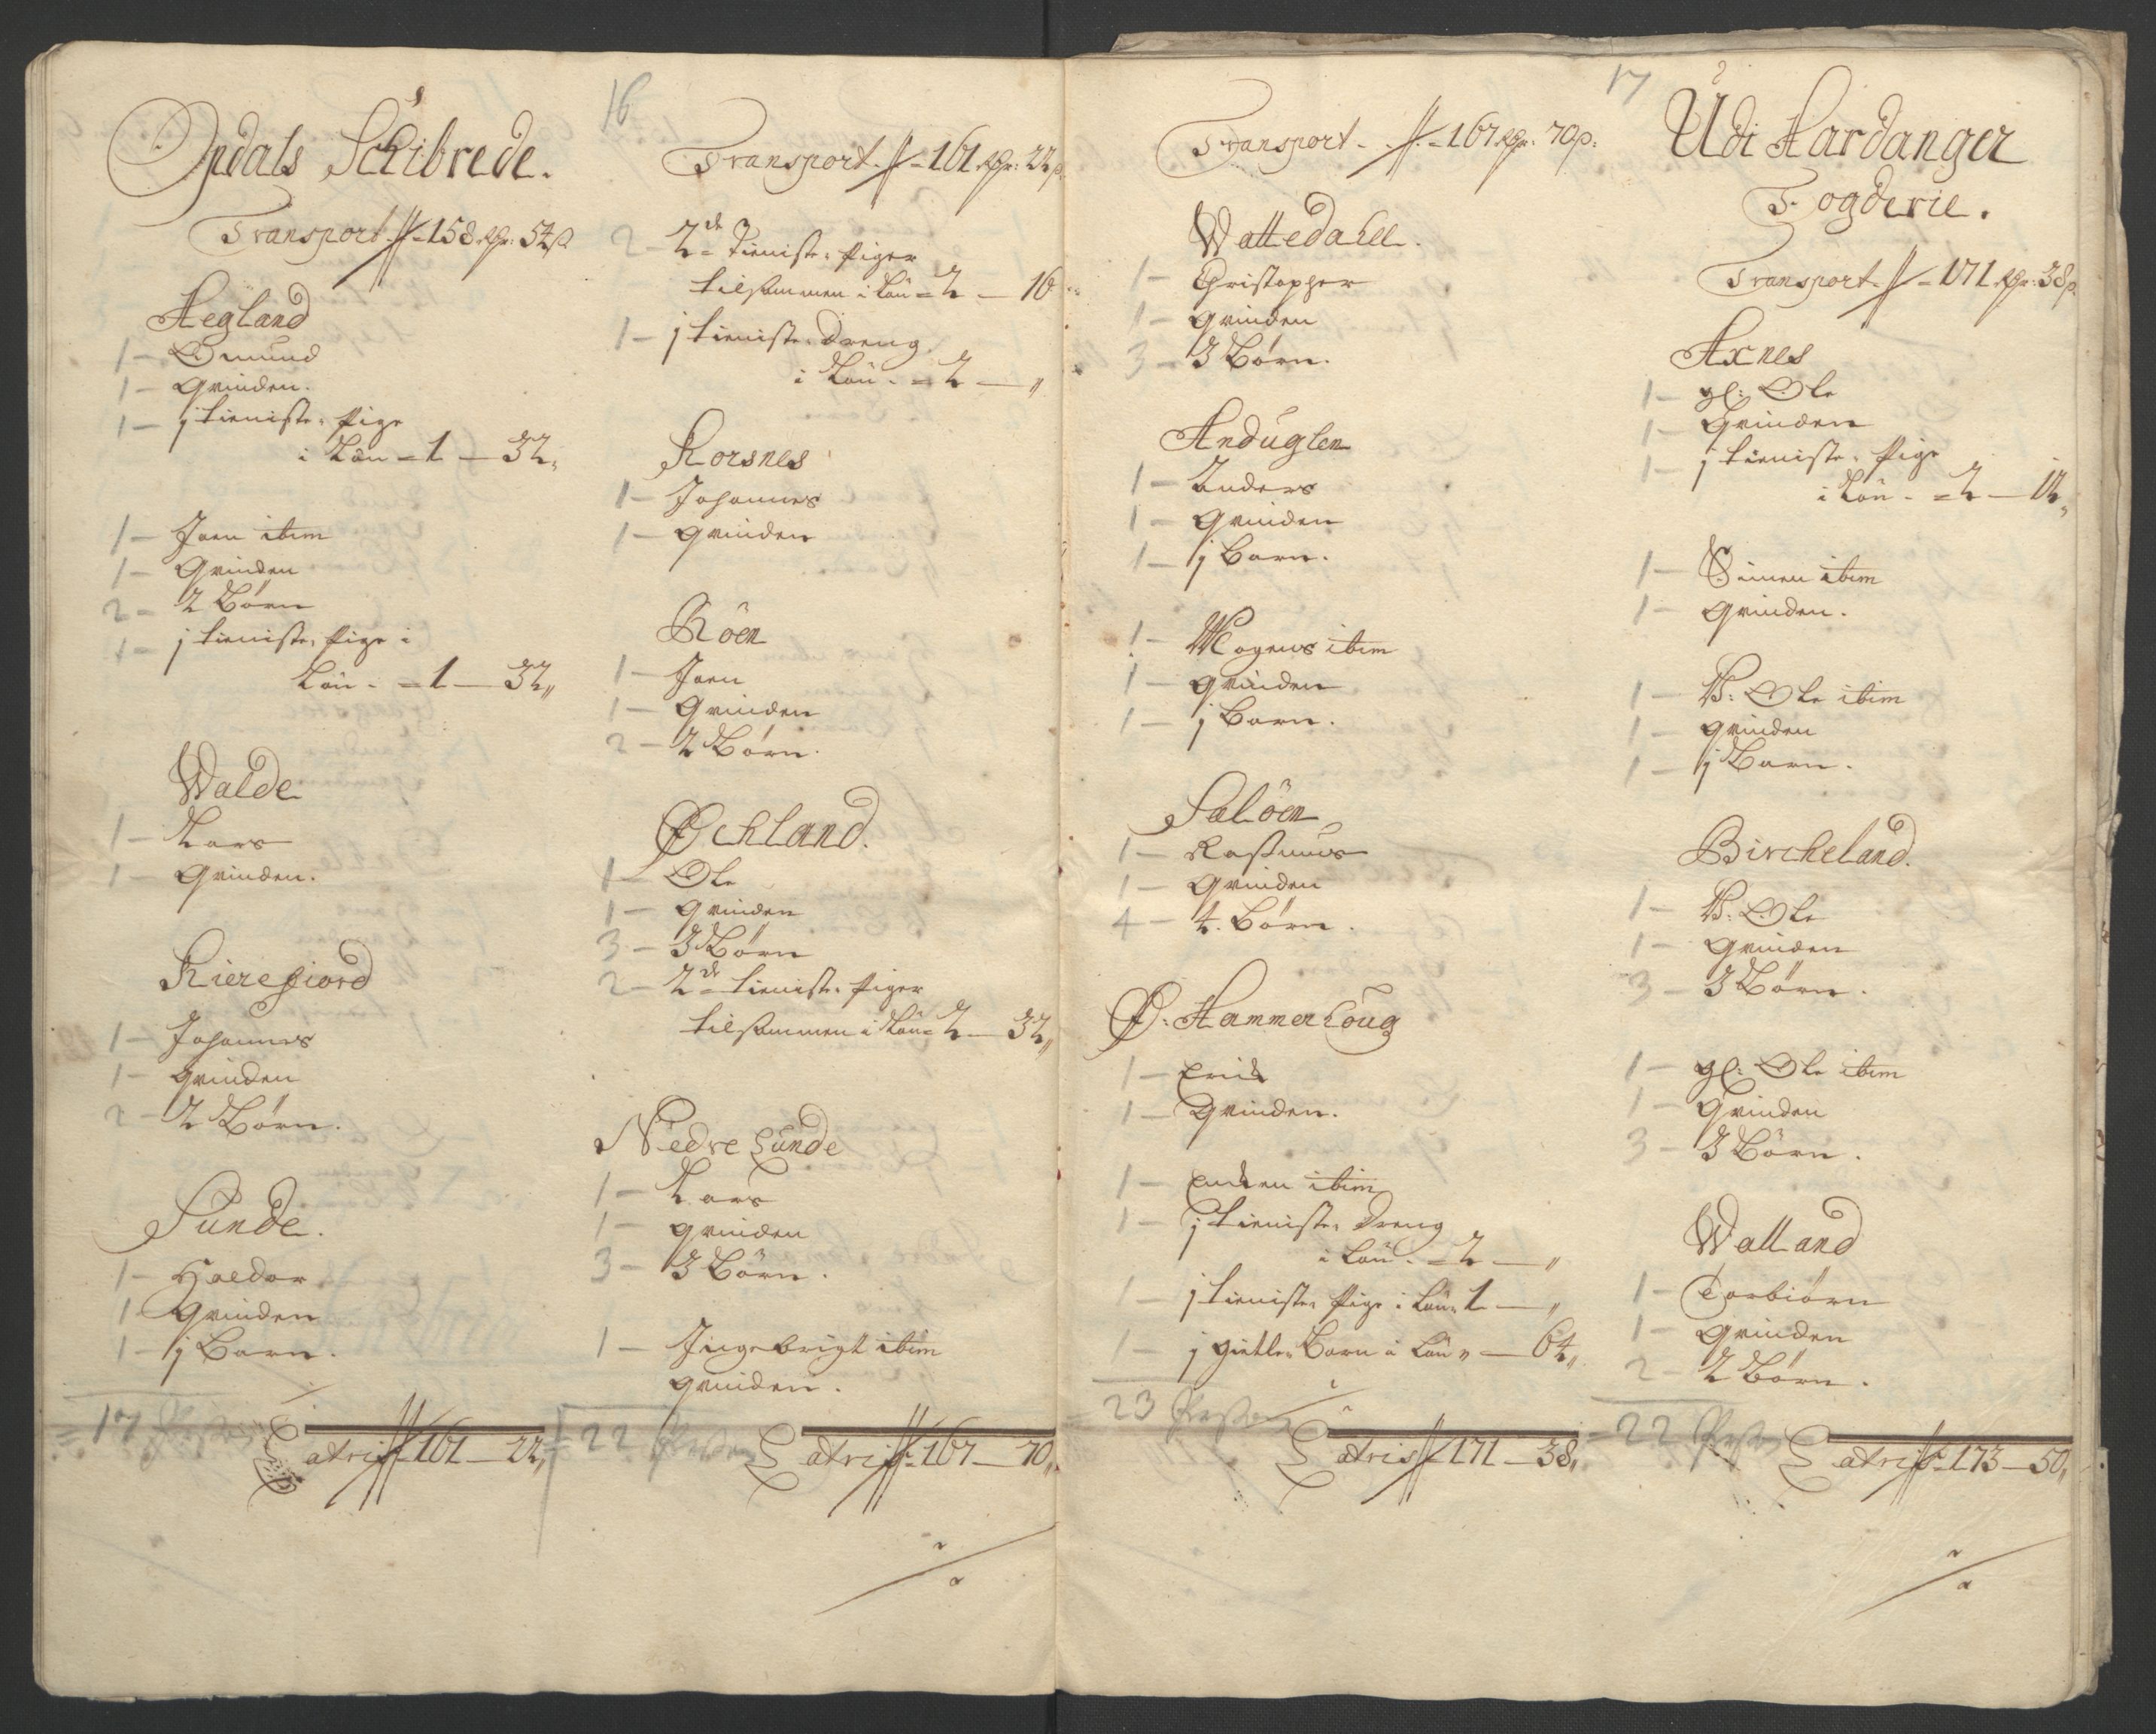 Opdals Schibrede.
Transport # = 158 Rdr: 54 ß
Aegland
1 — Omund
1 — Qvinden.
1 — j tieniste Pige
i Lön = 1 — 32 „
1 — Joen ibim
1 — Qvinden
2 — 2 Börn
1 — j tieniste Pige i
Lön = 1 — 32 „
Walde
1 — Lars
1 — Qvinden.
Kierefiord
1 — Johannes
1 — Qvinden
2 — 2 Börn.
Sunde.
1 — Haldor
1 Qvinden
1 — j Barn.
= 17
Latris # 161 — 22 „
16
Transport # = 161 Rdr: 22 ß
2 — 2de Tieniste Piger
tilsammen i Lön = 2 — 16
1 — j tieniste dreng
i Lön = 2 — „
Korsnes
1 — Johannes
1 — Qvinden
Röen
1 — Joen
1 — Qvinden
2 — 2 Börn.
Øchland.
1 — Ole
1 — Qvinden
3 — 3 Börn
2 — 2de tieniste Piger
tilsammen i Lön = 2 — 32 „
Nedre Sunde
1 — Lars
1 — Qvinden
3 — 3 Börn.
1 — Ingebrigt ibim
Qvinden.
= 22
Latris # = 167 — 70 „
Transport # = 167 Rdr: 70 ß:
Wattedahll.
1 — Christopher
1 — Qvinden
3 — 3 Börn.
Anduglen
1 — Anders
1 — Qvinden
1 — j Barn.
1 — Mogens ibim
1 — Qvinden
1 — j Barn.
Salöen
1 — Rasmus
1 — Qvinden
4 — 4. Börn.
Ø: Hammerhoug
1 — Erik
1 — Qvinden.
1 — Encken ibim
1 — j tieniste dreng
i Lön = 2 — „
1 — j tieniste Pige i Lön 1 — „
1 — j gietle Barn i Lön „ — 64 „
= 23 Persh
Latris # 171 — 38 „
17
Udi Hardanger
Fogderie.
Transport # = 171 Rdr: 38 ß
Axnes
1 — gl: Ole
1 — Qvinden
1 — j tieniste Pige
i Lön = 2 — 12 „
1 — Simen ibim
1 — Qvinden.
1 — N: Ole ibim
1 — Qvinden
1 — j Barn.
Bircheland.
1 — N: Ole
1 — Qvinden
3 — 3 Börn.
1 — gl: Ole ibim
1 — Qvinden
3 — 3 Börn.
Walland
1 — Torbiörn
1 — Qvinden
2 — 2 Börn.
= 22 Persh
Latris # = 173 — 50 „